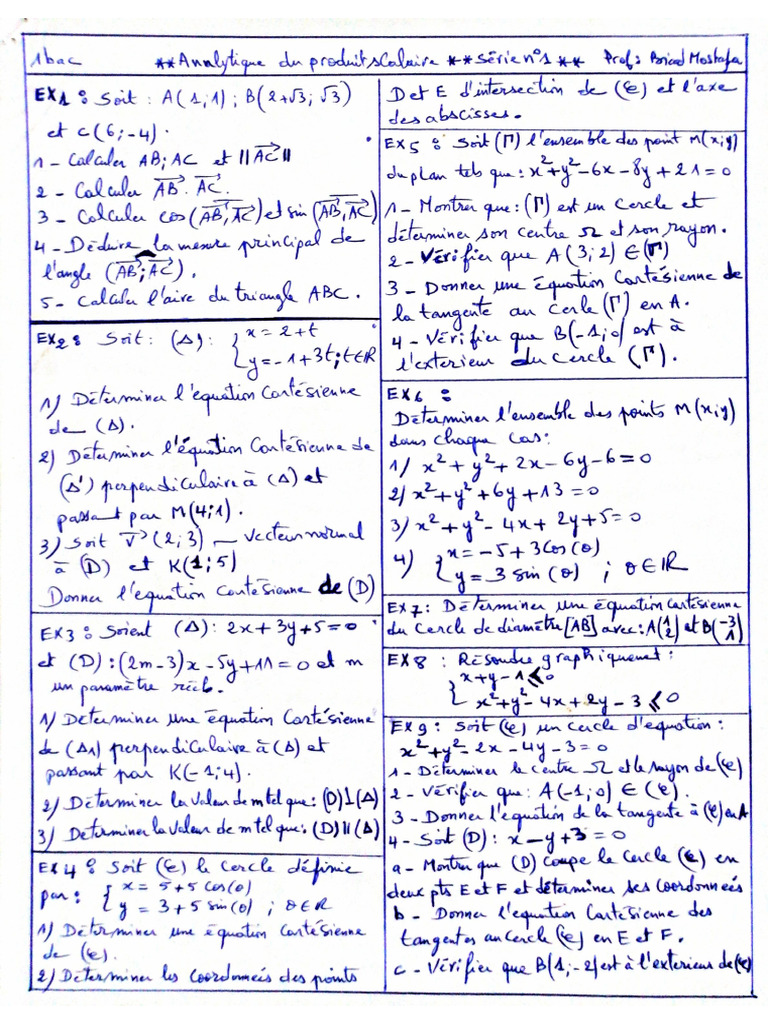 1bac **Analytique du produit scalaire **série n°1 ** Prof: Briad Mostafa
EX1: Soit : A(1;1) ; B(2+√3; √3)
et C(6;-4).
1 - Calculer AB; AC et ||AC||
2 - Calculer AB . AC.
3 - Calculer cos(AB;AC) et sin(AB;AC)
4 - Déduire la mesure principal de
l'angle (AB;AC).
5 - Calculer l'aire du triangle ABC.
EX2: Soit: (Δ): { x = 2+t
y = -1+3t; t∈ℝ
1) Déterminer l'équation Cartésienne
de (Δ).
2) Déterminer l'équation Cartésienne de
(Δ') perpendiculaire à (Δ) et
passant par M(4;1).
3) Soit V(2;3) _ vecteur normal
à (D) et K(1;5)
Donner l'equation Cartésienne de (D)
EX3: Soient (Δ): 2x+3y+5=0
et (D):(2m-3)x-5y+11=0 et m
un paramètre réél.
1) Déterminer une équation Cartésienne
de (Δ1) perpendiculaire à (Δ) et
passant par K(-1;4).
2) Déterminer la valeur de m tel que: (D)⊥(Δ)
3) Déterminer la valeur de m tel que: (D)∥(Δ)
EX4: Soit (C) le cercle définie
par: { x = 5+5 cos(θ)
y = 3+5 sin(θ) ; θ∈ℝ
1) Déterminer une équation Cartésienne
de (C).
2) Déterminer les coordonneés des points
Det E d'intersection de (C) et l'axe
des abscisses.
EX5: Soit (Γ) l'ensemble des point M(x;y)
du plan tels que: x²+y²-6x-8y+21=0
1 - Montrer que: (Γ) est un Cercle et
déterminer son centre Ω et son rayon.
2 - Vérifier que A(3;2) ∈(Γ)
3 - Donner une équation Cartésienne de
la tangente au Cerle (Γ) en A.
4 - Vérifier que B(-1;0) est à
l'exterieur du cercle (Γ).
EX6 :
Déterminer l'ensemble des points M(x;y)
dans chaque cas:
1) x²+y²+2x-6y-6=0
2) x²+y²+6y+13=0
3) x²+y²-4x+2y+5=0
4) { x = -5+3cos(θ)
y = 3 sin(θ) ; θ∈ℝ
EX7: Déterminer une équation Cartésienne
du Cercle de diamètre [AB] avec: A(1 2) et B(-3 1)
EX8 : Résoudre graphiquement:
{ x+y-1 ≤ 0
x²+y²-4x+2y-3 ≤ 0
EX9: Soit (C) un Cercle d'equation:
x²+y²-2x-4y-3=0
1 - Déterminer le centre Ω et le rayon de (C)
2 - Vérifier que: A(-1;0) ∈ (C).
3 - Donner l'équation de la tangente à (C) en A
4 - Soit (D): x-y+3=0
a - Montrer que (D) coupe le Cercle (C) en
deux pts E et F et déterminer ses coordonneés
b - Donner l'equation Cartésienne des
tangentes au cercle (C) en E et F.
c - Vérifier que B(1;-2) est à l'exterieur de (C)